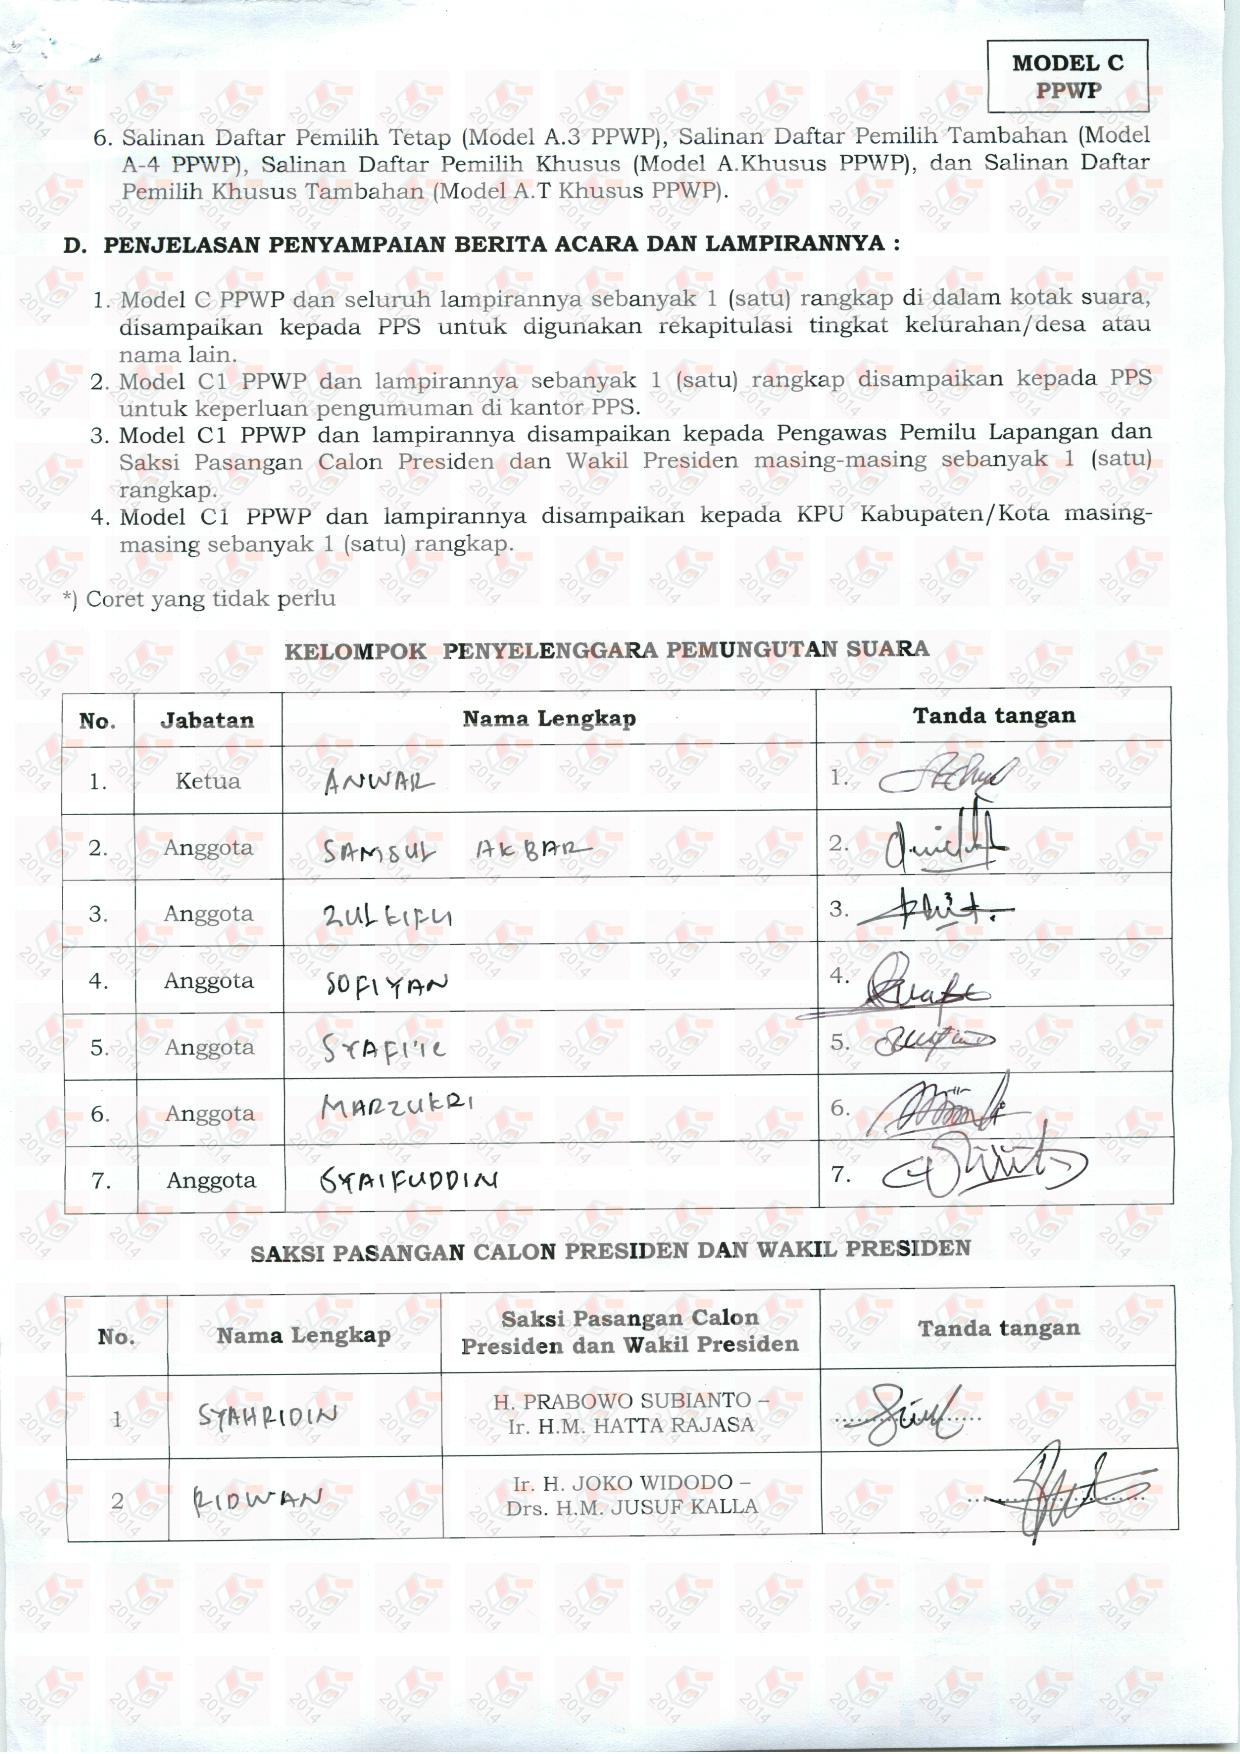 MODEL C
PPWP
6. Salinan Daftar Pemilih Tetap (Model A.3 PPWP), Salinan Daftar Pemilih Tambahan (Model
A-4 PPWP), Salinan Daftar Pemilih Khusus (Model A.Khusus PPWP), dan Salinan Daftar
Pemilih Khusus Tambahan (Model A.T Khusus PPWP).
D. PENJELASAN PENYAMPAIAN BERITA ACARA DAN LAMPIRANNYA :
1. Model C PPWP dan seluruh lampirannya sebanyak 1 (satu) rangkap di dalam kotak suara,
disampaikan kepada PPS untuk digunakan rekapitulasi tingkat kelurahan/desa atau
nama lain.
2. Model C1 PPWP dan lampirannya sebanyak 1 (satu) rangkap disampaikan kepada PPS
untuk keperluan pengumuman di kantor PPS.
3. Model C1 PPWP dan lampirannya disampaikan kepada Pengawas Pemilu Lapangan dan
Saksi Pasangan Calon Presiden dan Wakil Presiden masing-masing sebanyak 1 (satu)
rangkap.
4. Model C1 PPWP dan lampirannya disampaikan kepada KPU Kabupaten/Kota masing-
masing sebanyak 1 (satu) rangkap.
*) Coret yang tidak perlu
KELOMPOK PENYELENGGARA PEMUNGUTAN SUARA
No. Jabatan Nama Lengkap Tanda tangan
1. Ketua ANWAR 1.
2. Anggota SAMSUL AKBAR 2.
3. Anggota ZULKIFLI 3.
4. Anggota SOFIYAN 4.
5. Anggota SYAFI'IE 5.
6. Anggota MARZUKRI 6.
7. Anggota SYAIFUDDIN 7.
SAKSI PASANGAN CALON PRESIDEN DAN WAKIL PRESIDEN
No. Nama Lengkap Saksi Pasangan Calon Presiden dan Wakil Presiden Tanda tangan
1 SYAHRIDIN H. PRABOWO SUBIANTO –
Ir. H.M. HATTA RAJASA
2 RIDWAN Ir. H. JOKO WIDODO –
Drs. H.M. JUSUF KALLA